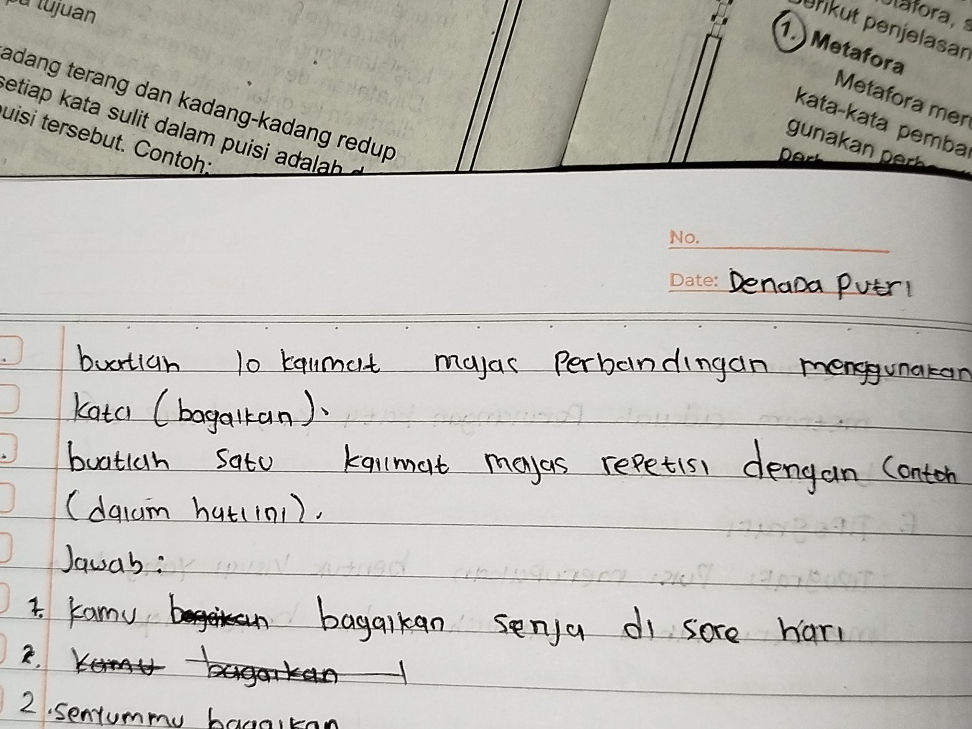 tujuan
adang terang dan kadang-kadang redup
setiap kata sulit dalam puisi adalah
uisi tersebut. Contoh:
tafora, s
erikut penjelasan
1. Metafora
Metafora men
kata-kata pemba
gunakan perb
No.
Date: Denada Putri
buatlah 10 kalimat majas Perbandingan menggunakan
kata (bagaikan).
buatlah satu kalimat majas repetisi dengan Contoh
(dalam hati ini).
Jawab:
1. kamu bagaikan bagaikan senja di sore hari
2. kamu bagaikan
2. Senyummu bagaikan